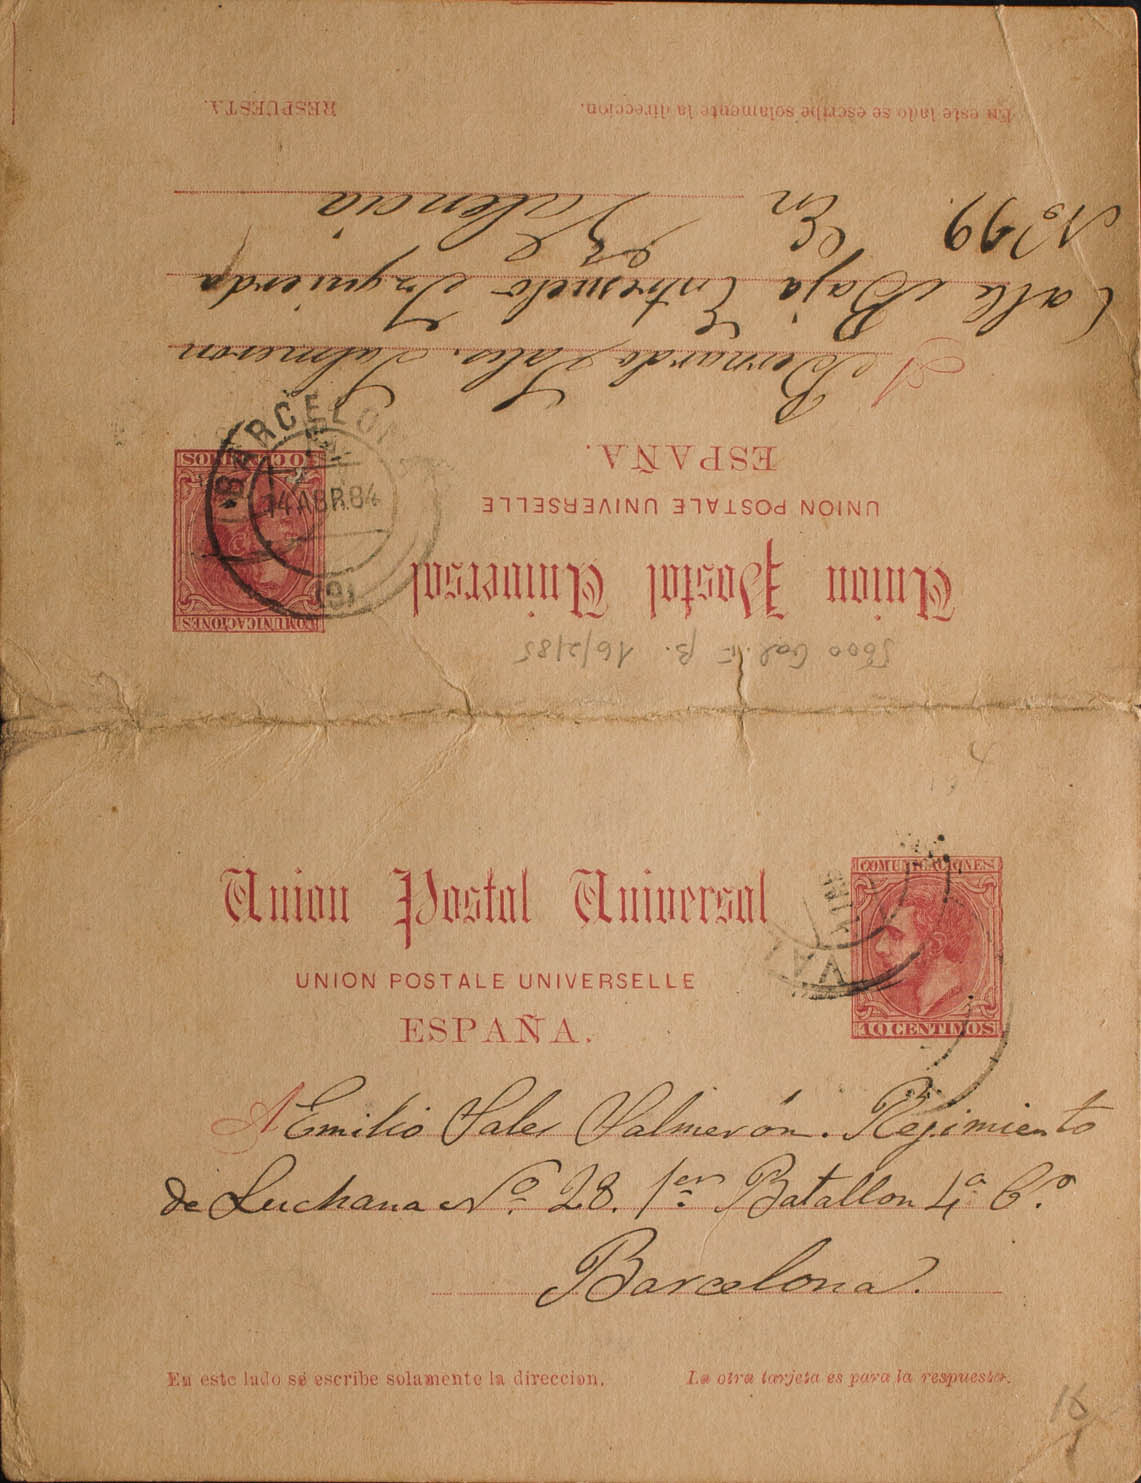 RESPUESTA.
En este lado se escribe solamente la direccion.
No 99 En Valencia
Calle Baja Entresuelo Izquierda
A Bernardo Sales Salmeron
ESPAÑA.
UNION POSTALE UNIVERSELLE
Union Postal Universal
COMUNICACIONES
10 CENTIMOS
BARCELONA
14 ABR. 84
(9)
16/2/85
Union Postal Universal
UNION POSTALE UNIVERSELLE
ESPAÑA.
COMUNICACIONES
10 CENTIMOS
VAL
A Emilio Sales Salmerón. Regimiento
de Luchana Nº. 28. 1er Batallon 4ª Cª.
Barcelona.
En este lado se escribe solamente la direccion.
La otra tarjeta es para la respuesta.
16